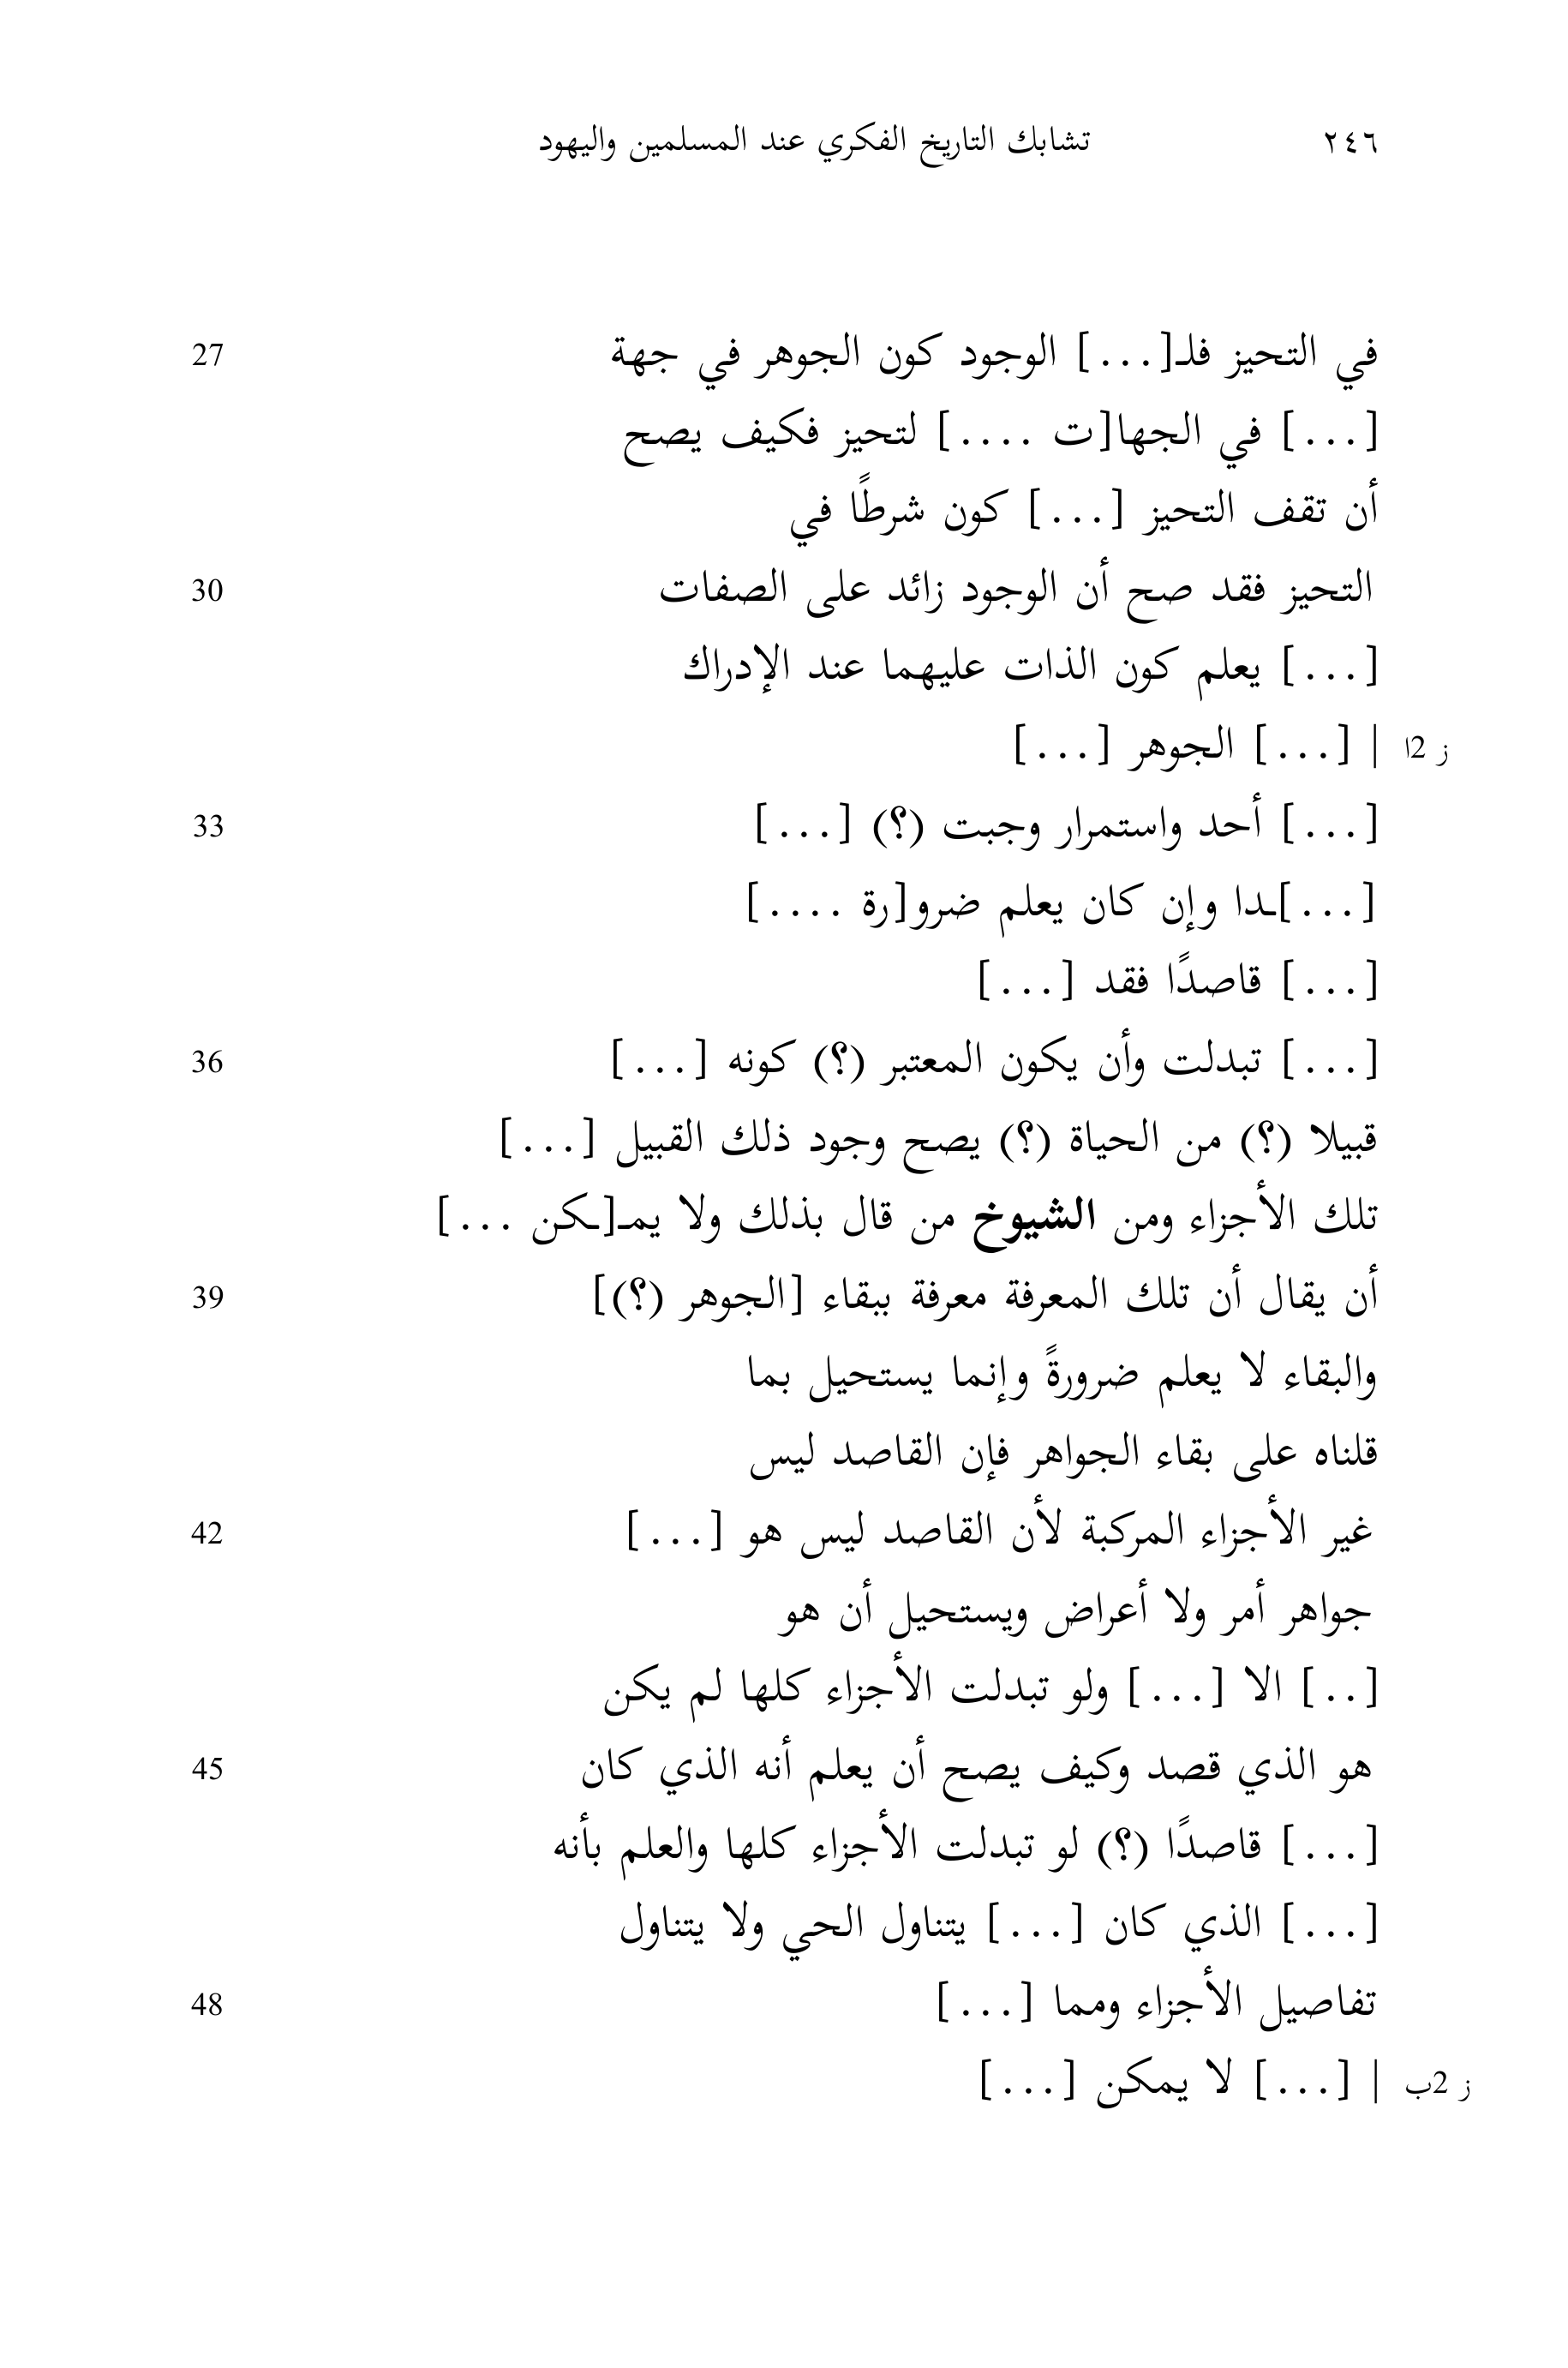 ٢٤٦ تشابك التاريخ الفكري عند المسلمين واليهود
في التحيز فلـ[...] الوجود كون الجوهر في جهة 27
[...] في الجها[ت ....] لتحيز فكيف يصح
أن تقف التحيز [...] كون شرطًا في
التحيز فقد صح أن الوجود زائد على الصفات 30
[...] يعلم كون الذات عليهما عند الإدراك
ز 2ا | [...] الجوهر [...]
[...] أحد واستمرار وجبت (؟) [...] 33
[...]ـدا وإن كان يعلم ضرو[رة ....]
[...] قاصدًا فقد [...]
[...] تبدلت وأن يكون المعتبر (؟) كونه [...] 36
قبيلا (؟) من الحياة (؟) يصح وجود ذلك القبيل [...]
تلك الأجزاء ومن الشيوخ من قال بذلك ولا يمـ[ـكن ...]
أن يقال أن تلك المعرفة معرفة ببقاء [الجوهر (؟)] 39
والبقاء لا يعلم ضرورةً وإنما يستحيل بما
قلناه على بقاء الجواهر فإن القاصد ليس
غير الأجزاء المركبة لأن القاصد ليس هو [...] 42
جواهر أمر ولا أعراض ويستحيل أن هو
[..] الا [...] ولو تبدلت الأجزاء كلها لم يكن
هو الذي قصد وكيف يصح أن يعلم أنه الذي كان 45
[...] قاصدًا (؟) لو تبدلت الأجزاء كلها والعلم بأنه
[...] الذي كان [...] يتناول الحي ولا يتناول
تفاصيل الأجزاء ومما [...] 48
ز 2ب | [...] لا يمكن [...]